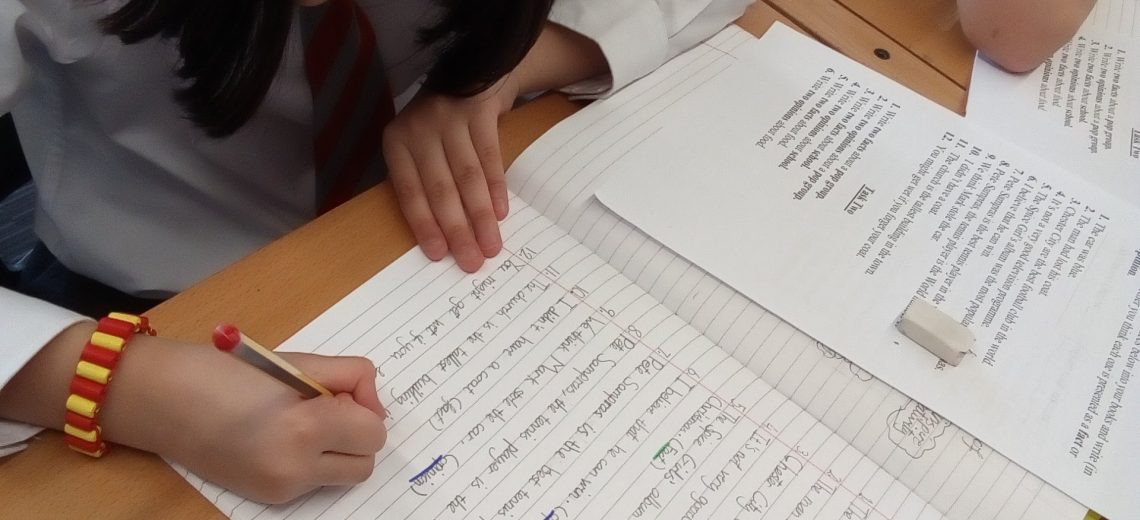 below into your books and write (in
you think each one is presented as a fact or
1. The car was blue.
2. The man had lost his coat.
3. Chester City are the best football club in the world.
4. It's not a very good television programme.
5. The Spice Girl's album was the most popular
6. I believe that he can win.
7. Pete Sampras is the best tennis player in the
8. Pete Sampras, the tennis player is the World
9. We think Mark stole the car.
10. I didn't have a coat.
11. The church is the tallest building in the town.
12. You might get wet if you forget your coat.
Task Two
1. Write two facts about a pop group.
2. Write two opinions about a pop group.
3. Write two facts about school.
4. Write two opinions about school.
5. Write two facts about food.
6. Write two opinions about food.
Task Two
1. Write two facts about a pop group.
2. Write two opinions about a pop group.
3. Write two facts about school.
4. Write two opinions about school.
1. The
2. The man
3. Chester City
4. It's not very good
5. The Spice Girls album
Christmas. (Fact)
6. I believe that he can win.
7. Pete Sampras is the best tennis
8. Pete Sampras, the tennis player is the
9. We think Mark stole the car. (opinion)
10. I didn't have a coat (fact)
11. The church is the tallest building
12. You might get wet if you